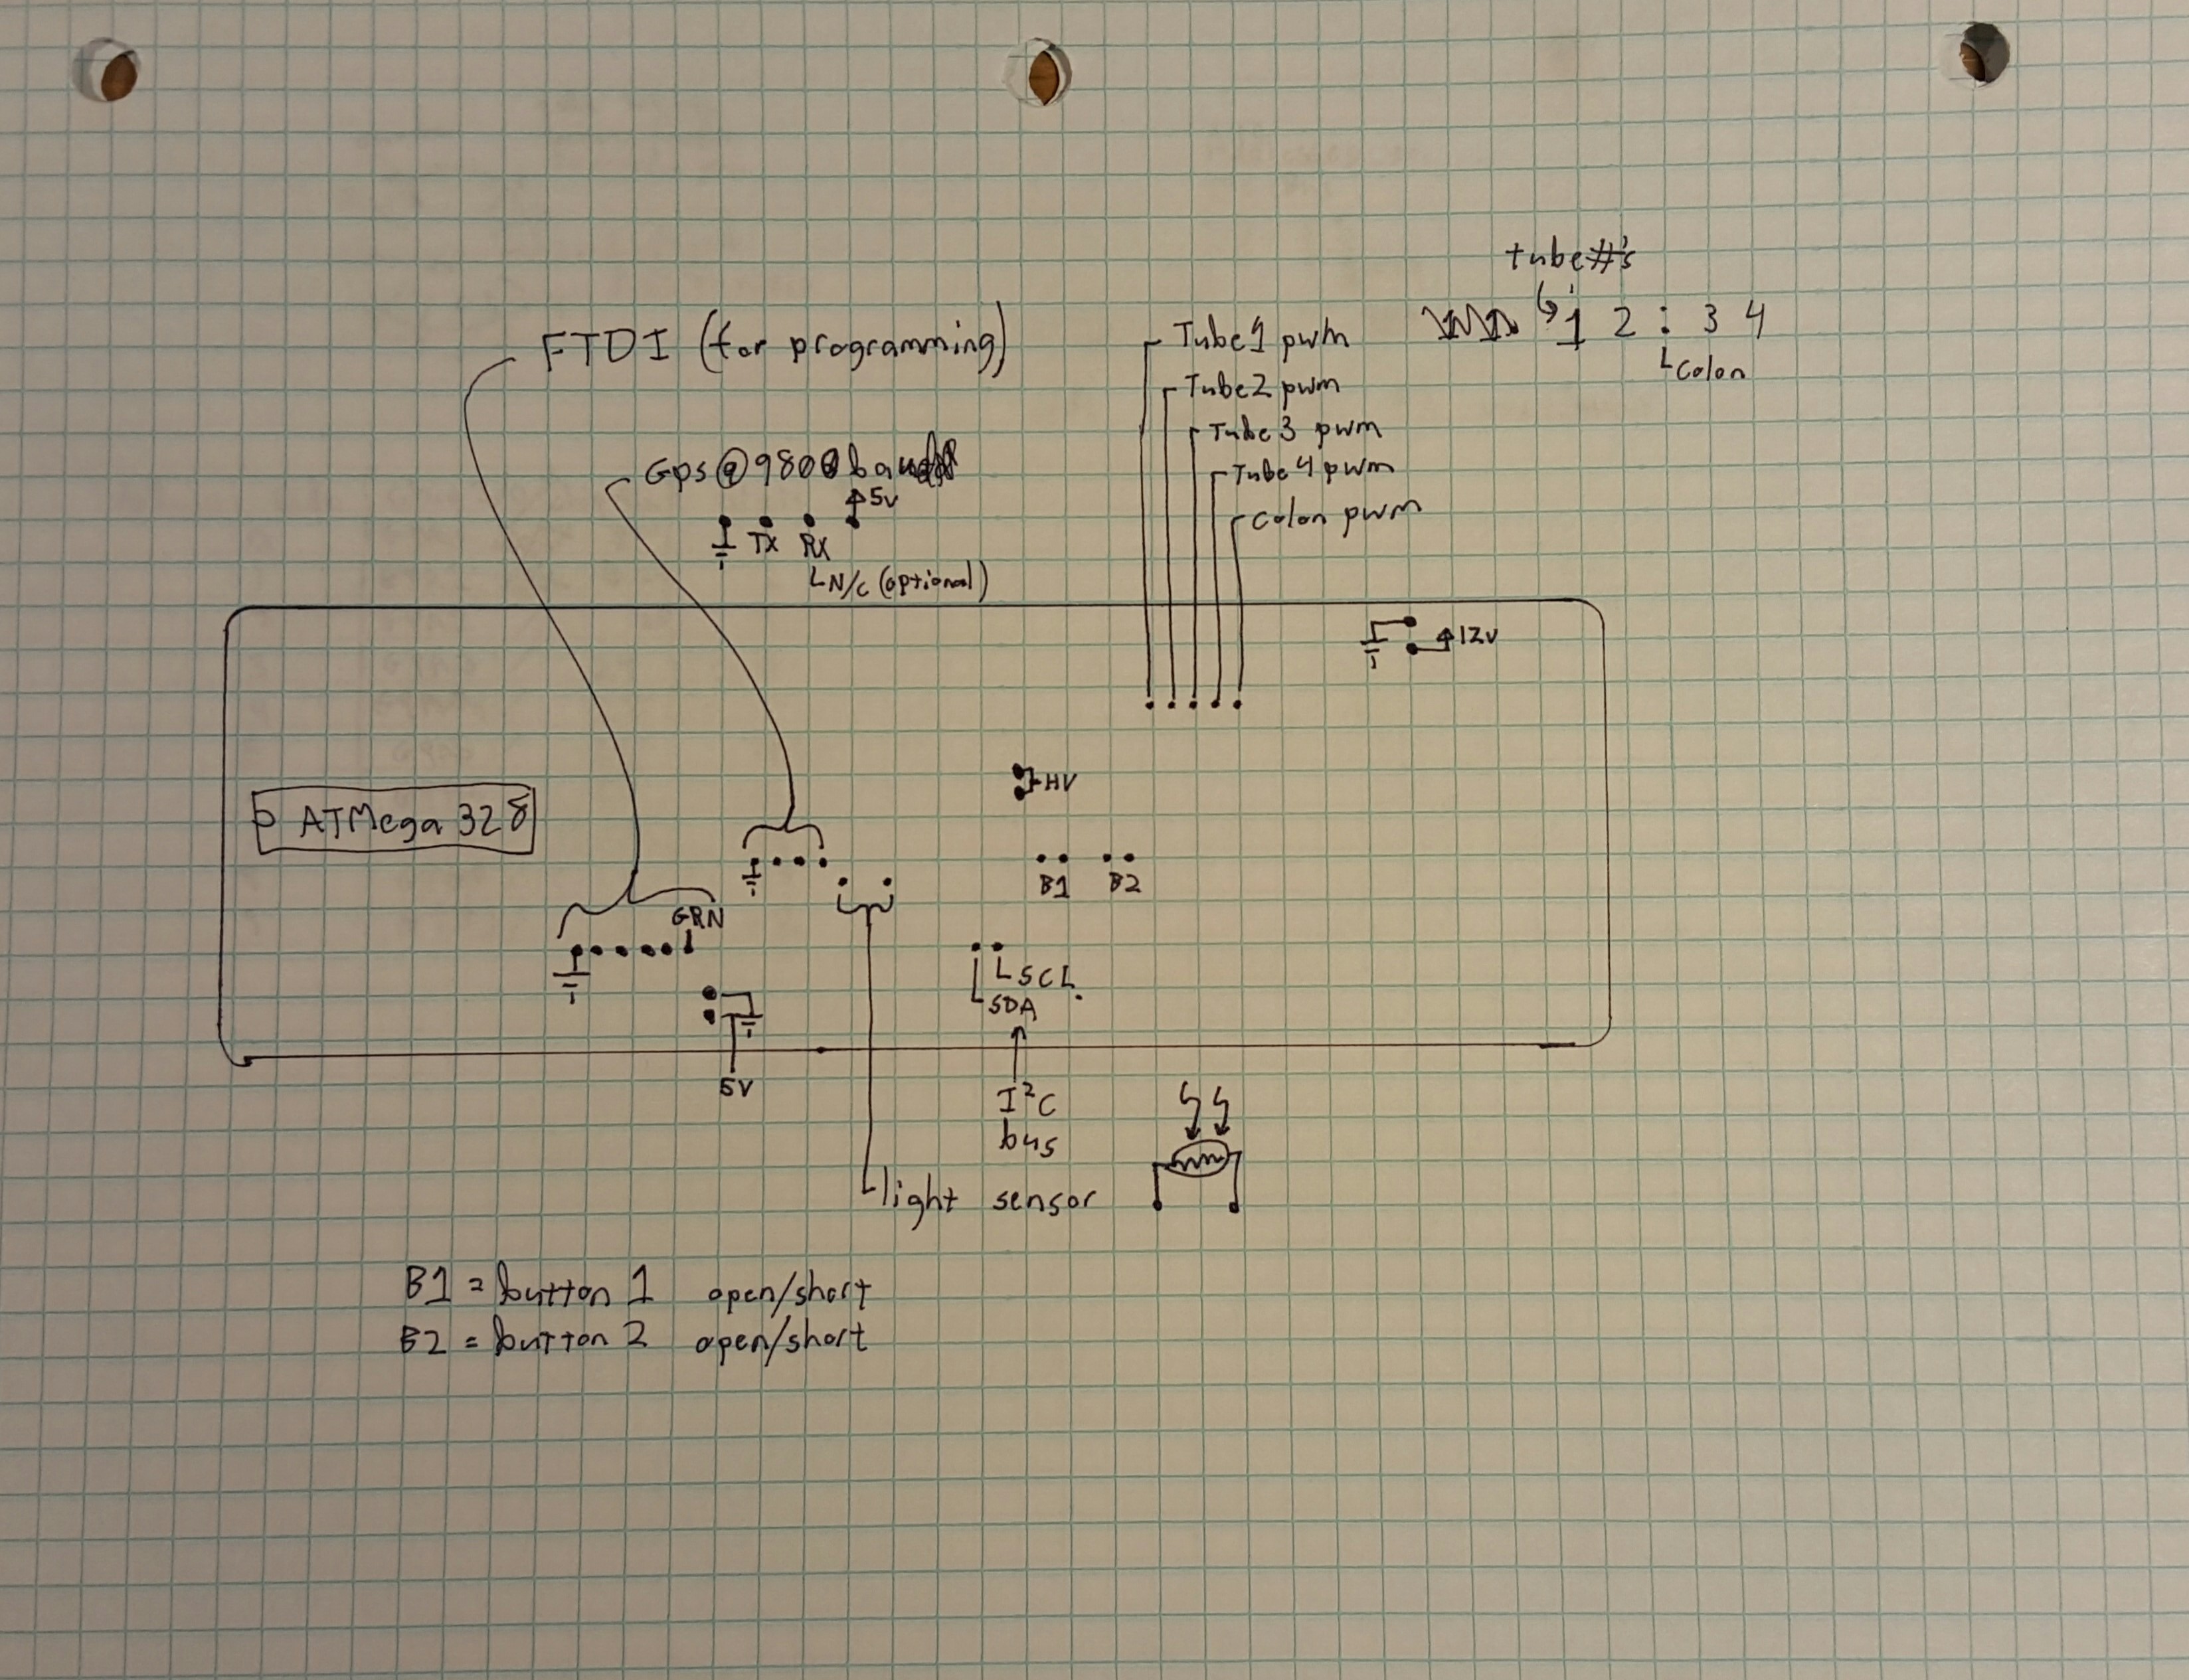 tube#'s
1 2 : 3 4
Colon
FTDI (for programming)
Tube1 pwm
Tube2 pwm
Tube3 pwm
Tube4 pwm
Colon pwm
Gps@9800 baud
5v
TX RX
N/C (optional)
12v
HV
ATMega 328
B1 B2
GRN
SCL
SDA
5V
I²C
bus
light sensor
B1 = button 1 open/short
B2 = button 2 open/short